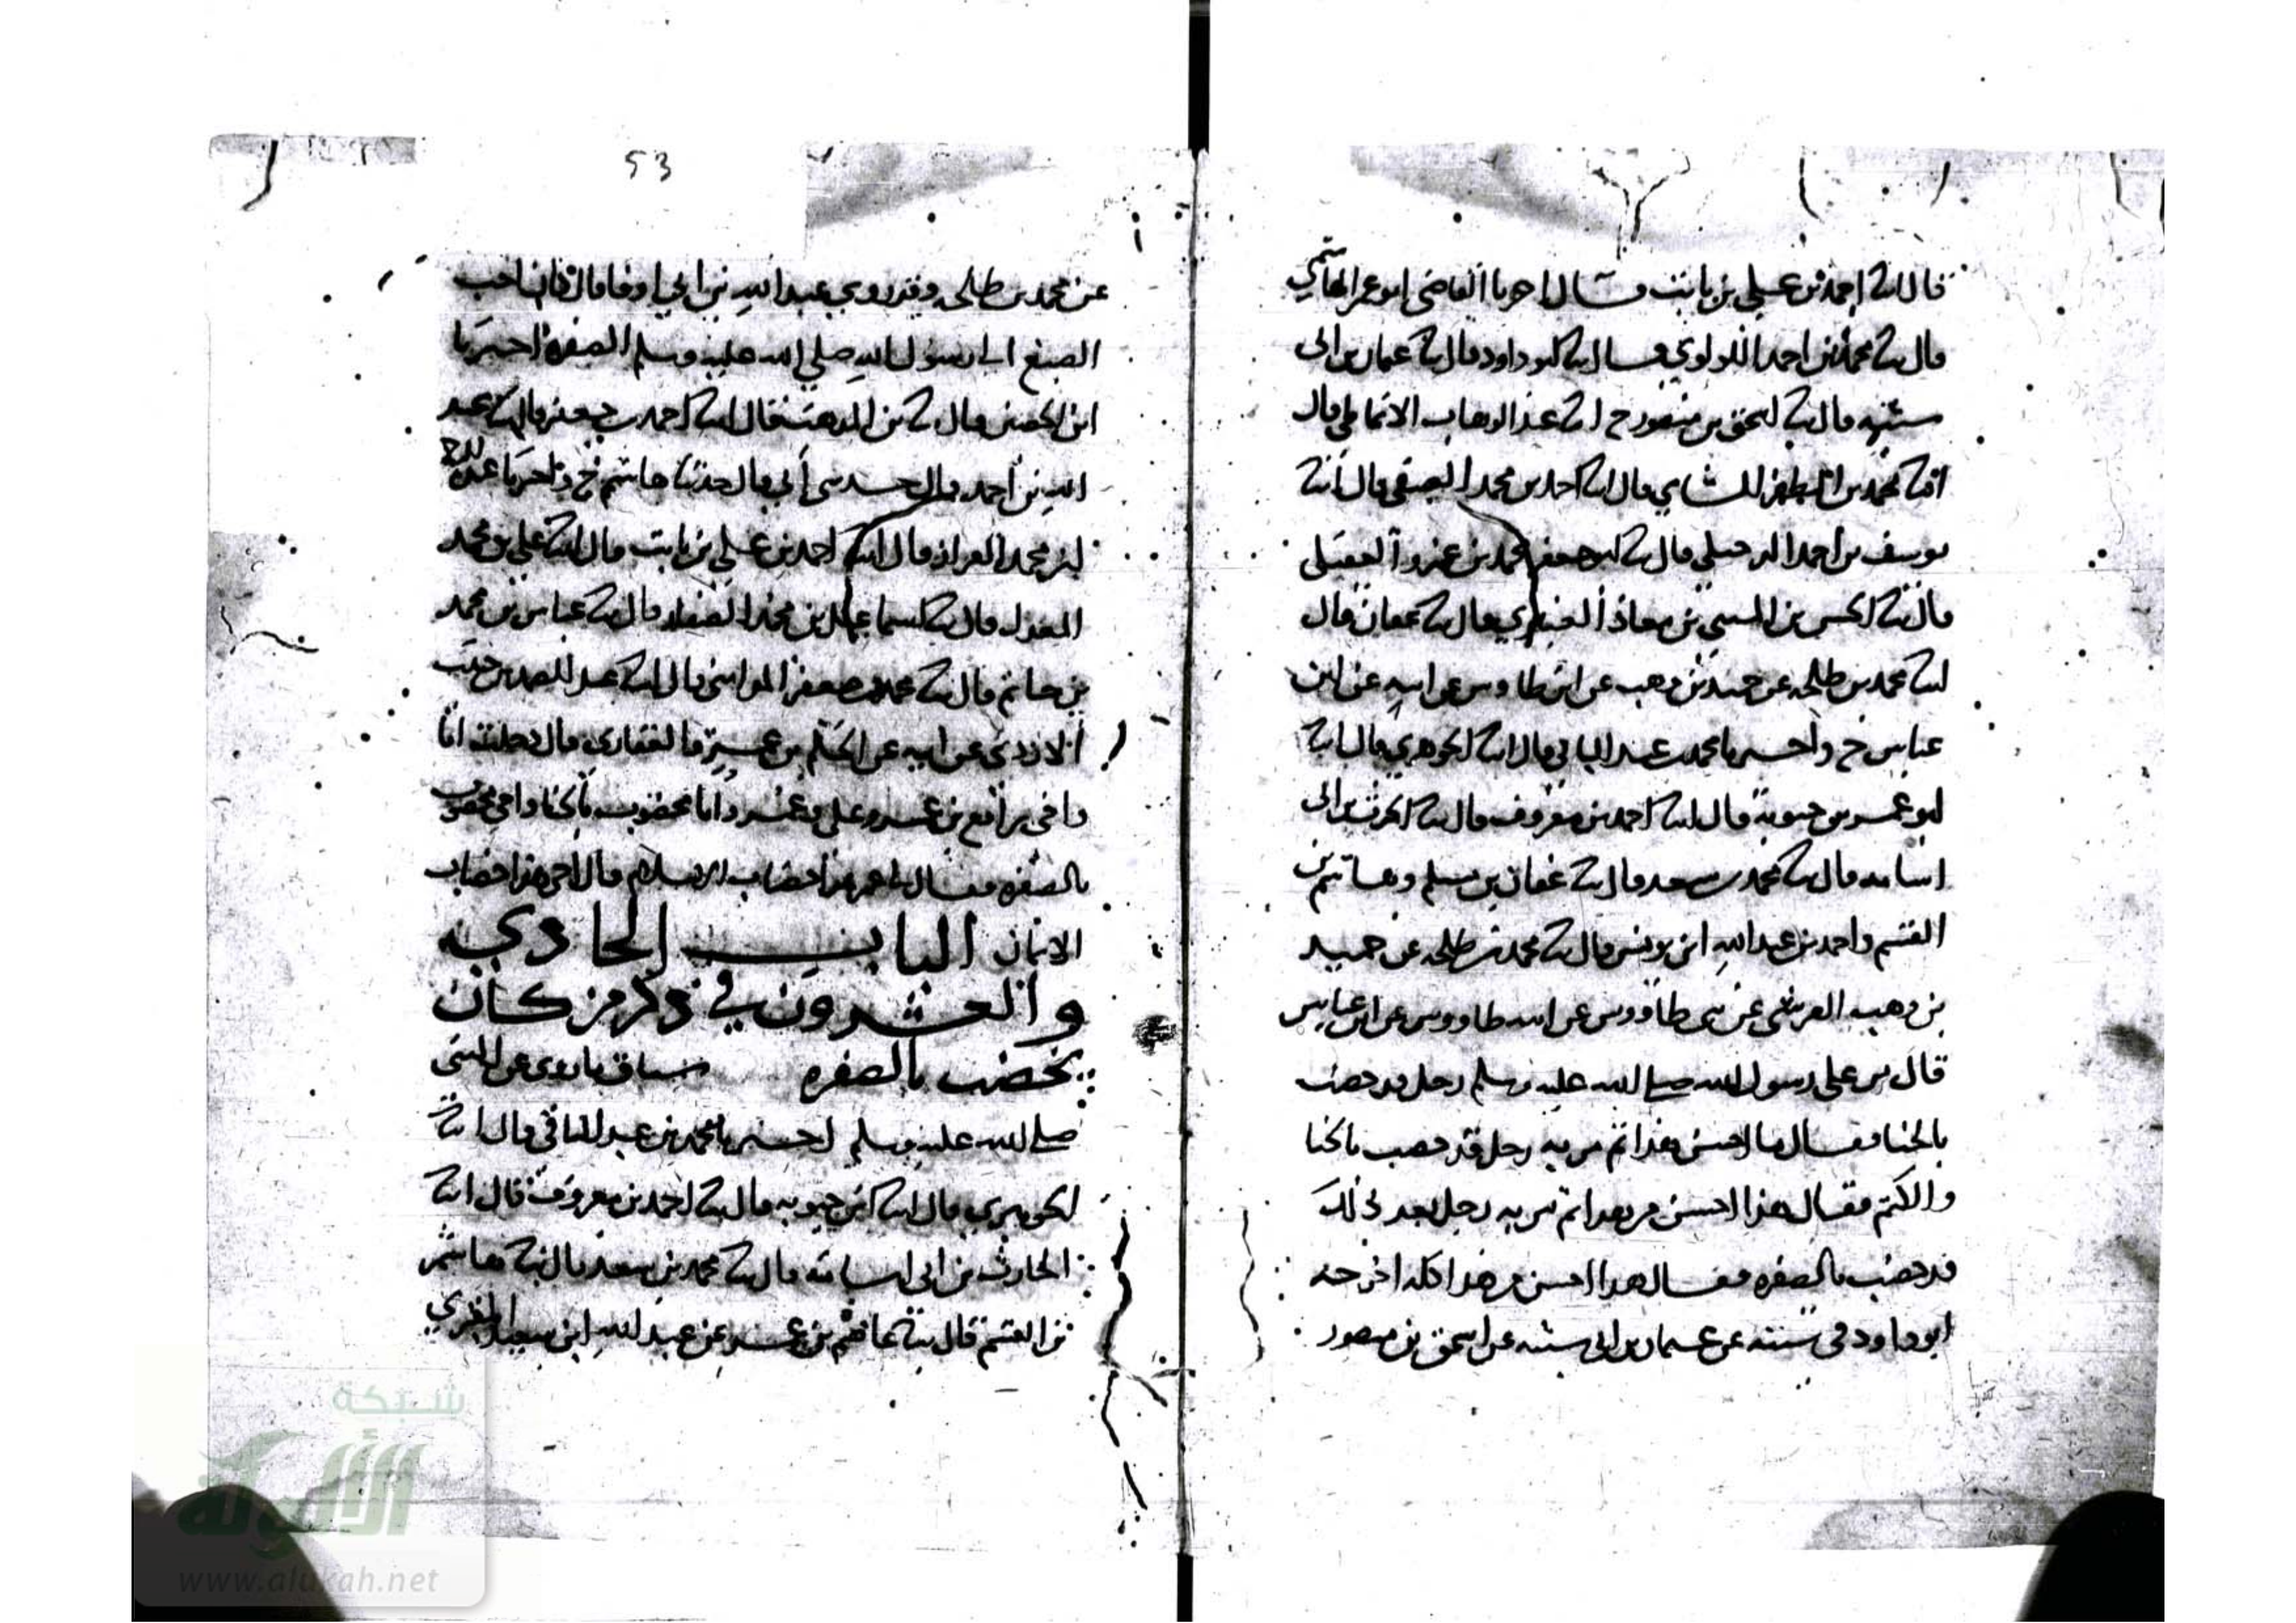 قال انا احمد بن علي بن ثابت قال اخبرنا القاضي ابو عمر الهاشمي
قال ثنا محمد بن احمد اللولوي قال ثنا ابو داود قال ثنا عثمان بن ابي
شيبه قال ثنا اسحق بن منصور ح انا عبد الوهاب الانماطي قال
انبا محمد بن المظفر الشامي قال انا احمد بن محمد العتيقي قال انبا
يوسف بن احمد الدخيلي قال ثنا ابو جعفر محمد بن عمرو العقيلي
قال ثنا الحسن بن المثني بن معاذ العنبري قال ثنا عفان قال
ثنا محمد بن طلحه عن حميد بن وهب عن ابن طاوس عن ابيه عن ابن
عباس ح واخبرنا محمد بن عبد الباقي قال انا الجوهري قال انا
ابو عمر بن حيويه قال انا احمد بن معروف قال ثنا الحرث بن ابي
اسامه قال ثنا محمد بن سعد قال ثنا عفان بن مسلم وهاشم بن
القسم واحمد بن عبد الله ابن يونس قال ثنا محمد بن طلحه عن حميد
بن وهب القرشي عن بني طاووس عن ابيه طاووس عن ابن عباس
قال مر علي رسول الله صلى الله عليه وسلم رجل قد خضب
بالحنا فقال ما احسن هذا ثم مر به رجل قد خضب بالحنا
والكتم فقال هذا احسن من هذا ثم مر به رجل بعد ذلك
قد خضب بالصفره فقال هذا احسن من هذا كله اخرجه
ابو داود في سننه عن عثمان بن ابي شيبه عن اسحق بن منصور
53
عن محمد بن طلحه وقد روي عبد الله بن ابي اوفا قال كان احب
الصبغ الى رسول الله صلي الله عليه وسلم الصفره اخبرنا
ابن الحصين قال ثنا بن المذهب قال انا احمد بن جعفر قال ثنا عبد
الله بن احمد قال حدثني أبي قال حدثنا هاشم ح واخبرنا عبد الرحمن
بن محمد القزاز قال انا احمد بن علي بن ثابت قال انا علي بن محمد
المعدل قال ثنا اسماعيل بن محمد الصفار قال ثنا عباس بن محمد
بن حاتم قال ثنا محمد بن جعفر المدايني قال انا عبد الصمد بن حبيب
الازدي عن ابيه عن الحكم بن عمرو الغفاري قال دخلت انا
واخي رافع بن عمرو علي عمر وانا مخضوب بالحنا واخي مخضوب
بالصفره فقال لي عمر هذا خضاب الاسلام وقال لاخي هذا خضاب
الايمان الباب الحادي
والعشرون في ذكر من كان
يخضب بالصفره سياق ما روي عن النبي
صلى الله عليه وسلم اخبرنا محمد بن عبد الباقي قال انا
الجوهري قال انا ابن حيويه قال ثنا احمد بن معروف قال انا
الحارث بن ابي اسامه قال ثنا محمد بن سعد قال ثنا هاشم
بن القسم قال ثنا عاصم بن عمر عن عبد الله ابن سعيد المقبري
شبكة
الألوكة
alukah
www.alukah.net